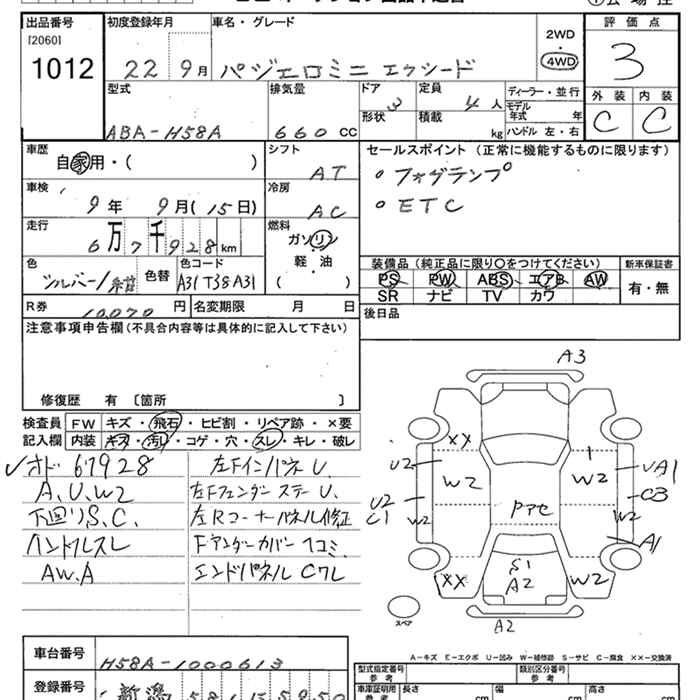 出品番号
[2060]
1012
初度登録年月
22 9月
車名・グレード
パジェロミニ エクシード
2WD
・
4WD
評価点
3
外装 内装
C C
型式
ABA-H58A
排気量
660 CC
ドア
3
形状
定員
4人
積載
kg
ディーラー・並行
モデル年式 年
ハンドル 左・右
車歴
自家用・( )
シフト
AT
車検
9年 9月(15日)
冷房
AC
走行
6万7千928km
燃料
ガソリン
軽・油
( )
色
シルバー/紺
色替
色コード
A31 T38 A31
R券
10,070円
名変期限 月 日
セールスポイント(正常に機能するものに限ります)
。フォグランプ
。ETC
装備品(純正品に限り○をつけてください)
PS PW ABS エアB AW
SR ナビ TV カワ
新車保証書
有・無
後日品
注意事項申告欄(不具合内容等は具体的に記入して下さい)
修復歴 有〔箇所 〕
検査員記入欄
FW キズ・飛石・ヒビ割・リペア跡・×要
内装 キズ・汚れ・コゲ・穴・スレ・キレ・破レ
✓オド 67928
A.U.W2
下回りS.C.
ハンドルスレ
AW.A
左Fインパネ U.
左Fフェンダーステー U.
左Rコーナーパネル修正
Fアンダーカバー ヘコミ.
エンドパネル Cワレ
A3
XX
U2
W2
U2
C1
W2
XX
Pアセ
S1
A2
A2
1
W2
UA1
C3
W2
A1
W2
スペア
A-キズ E-エクボ U-凹み W-補修跡 S-サビ C-腐食 XX-交換済
車台番号
H58A-1000613
登録番号
新潟 581
型式指定番号
参考
類別区分番号
参考
車庫証明用
参考
長さ
cm
幅
cm
高さ
cm